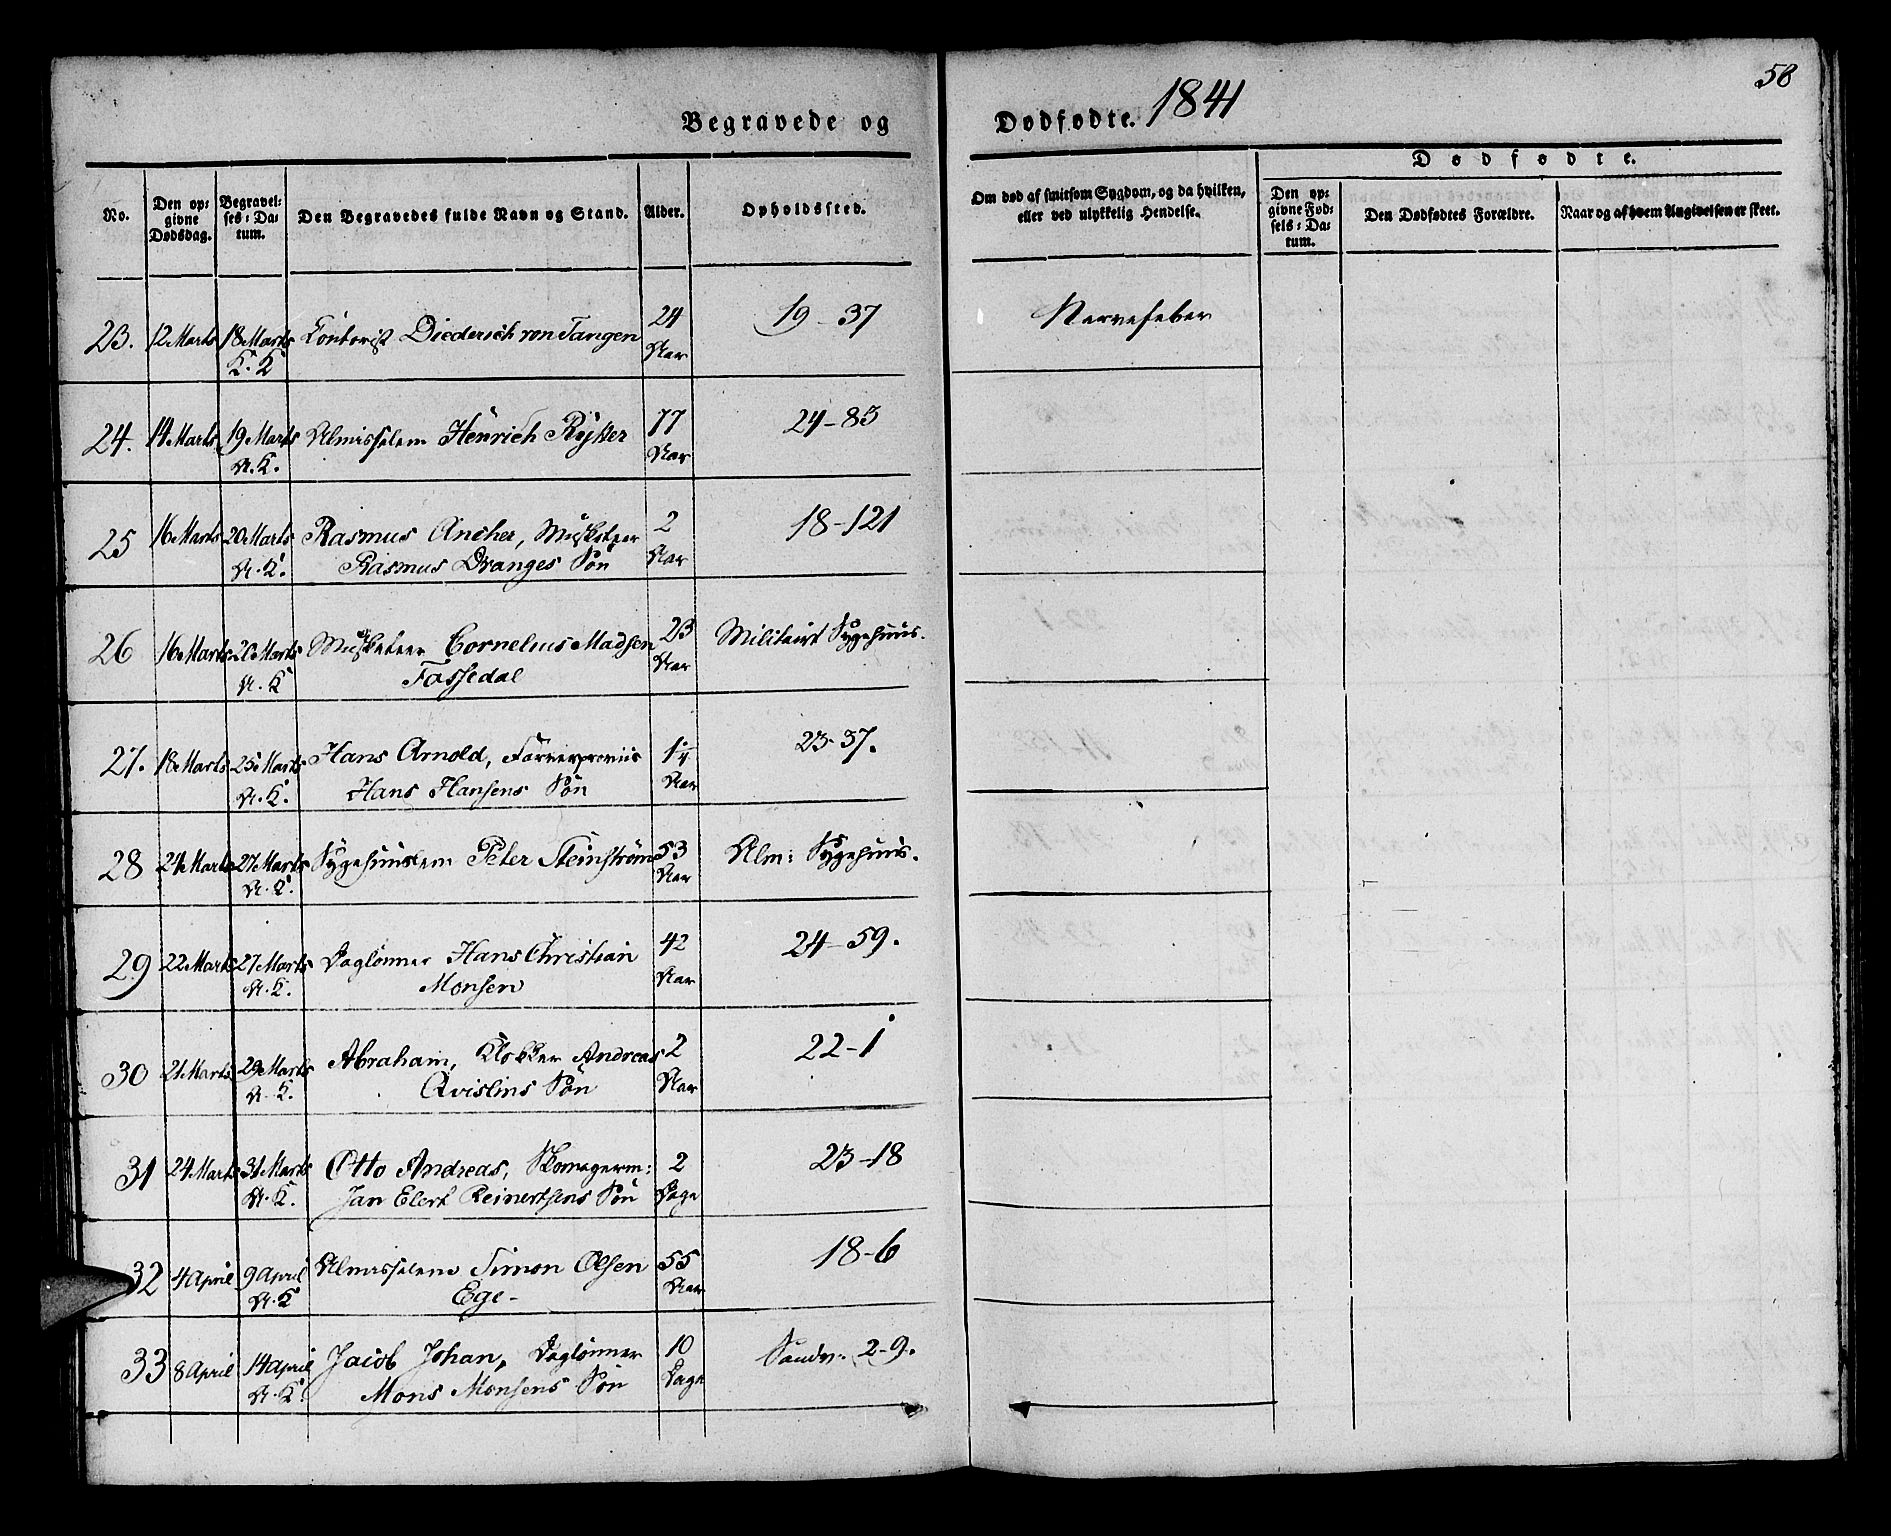 58
Begravede og Dødfødte. 1841
No.
Den op-
givne
Dødsdag.
Begravel-
ses-Da-
tum.
Den Begravedes fulde Navn og Stand.
Alder.
Opholdssted.
Om død af smitsom Sygdom, og da hvilken,
eller ved ulykkelig Hendelse.
Dødfødte.
Den op-
givne Fød-
sels-Da-
tum.
Den Dødfødtes Forældre.
Naar og af hvem Angivelsen er skeet.
23. 12 Marts 18 Marts Contorist Diederich von Tangen 24 19-37 Nervefeber
K. K Aar
24. 14 Marts 19 Marts Almisselem Henrich Rykter 77 24-83
N. K. Aar
25 16 Marts 20 Marts Rasmus Ancher, Musketeer 2 18-121
N. K. Rasmus Dranges Søn Aar
26 16 Marts 20 Marts Musketeer Cornelius Madsen 23 Militairt Sygehuus.
N. K Fossedal Aar
27. 18 Marts 25 Marts Hans Arnold, 1¼ 23-37.
N. K. Hans Hansens Søn Aar
28 24 Marts 27 Marts Sygehuuslem Peter Steinstrøm 53 Alm: Sygehuus.
N. K. Aar
29 22 Marts 27 Marts Daglønner Hans Christian 42 24-59.
N. K. Monsen Aar
30 21 Marts 29 Marts Abraham, Klokker Andreas 2 22-1
N. K. Qvislins Søn Aar
31 24 Marts 31 Marts Otto Andreas, Skomagerm: 2 23-18
N. K. Jan Elert Reinertsens Søn Dage
32 4 April 9 April Almisselem Simon Olsen 55 18-6
N. K Ege- Aar
33 8 April 14 April Jacob Johan, Daglønner 10 Sandv. 2-9.
N. K. Mons Monsens Søn Dage